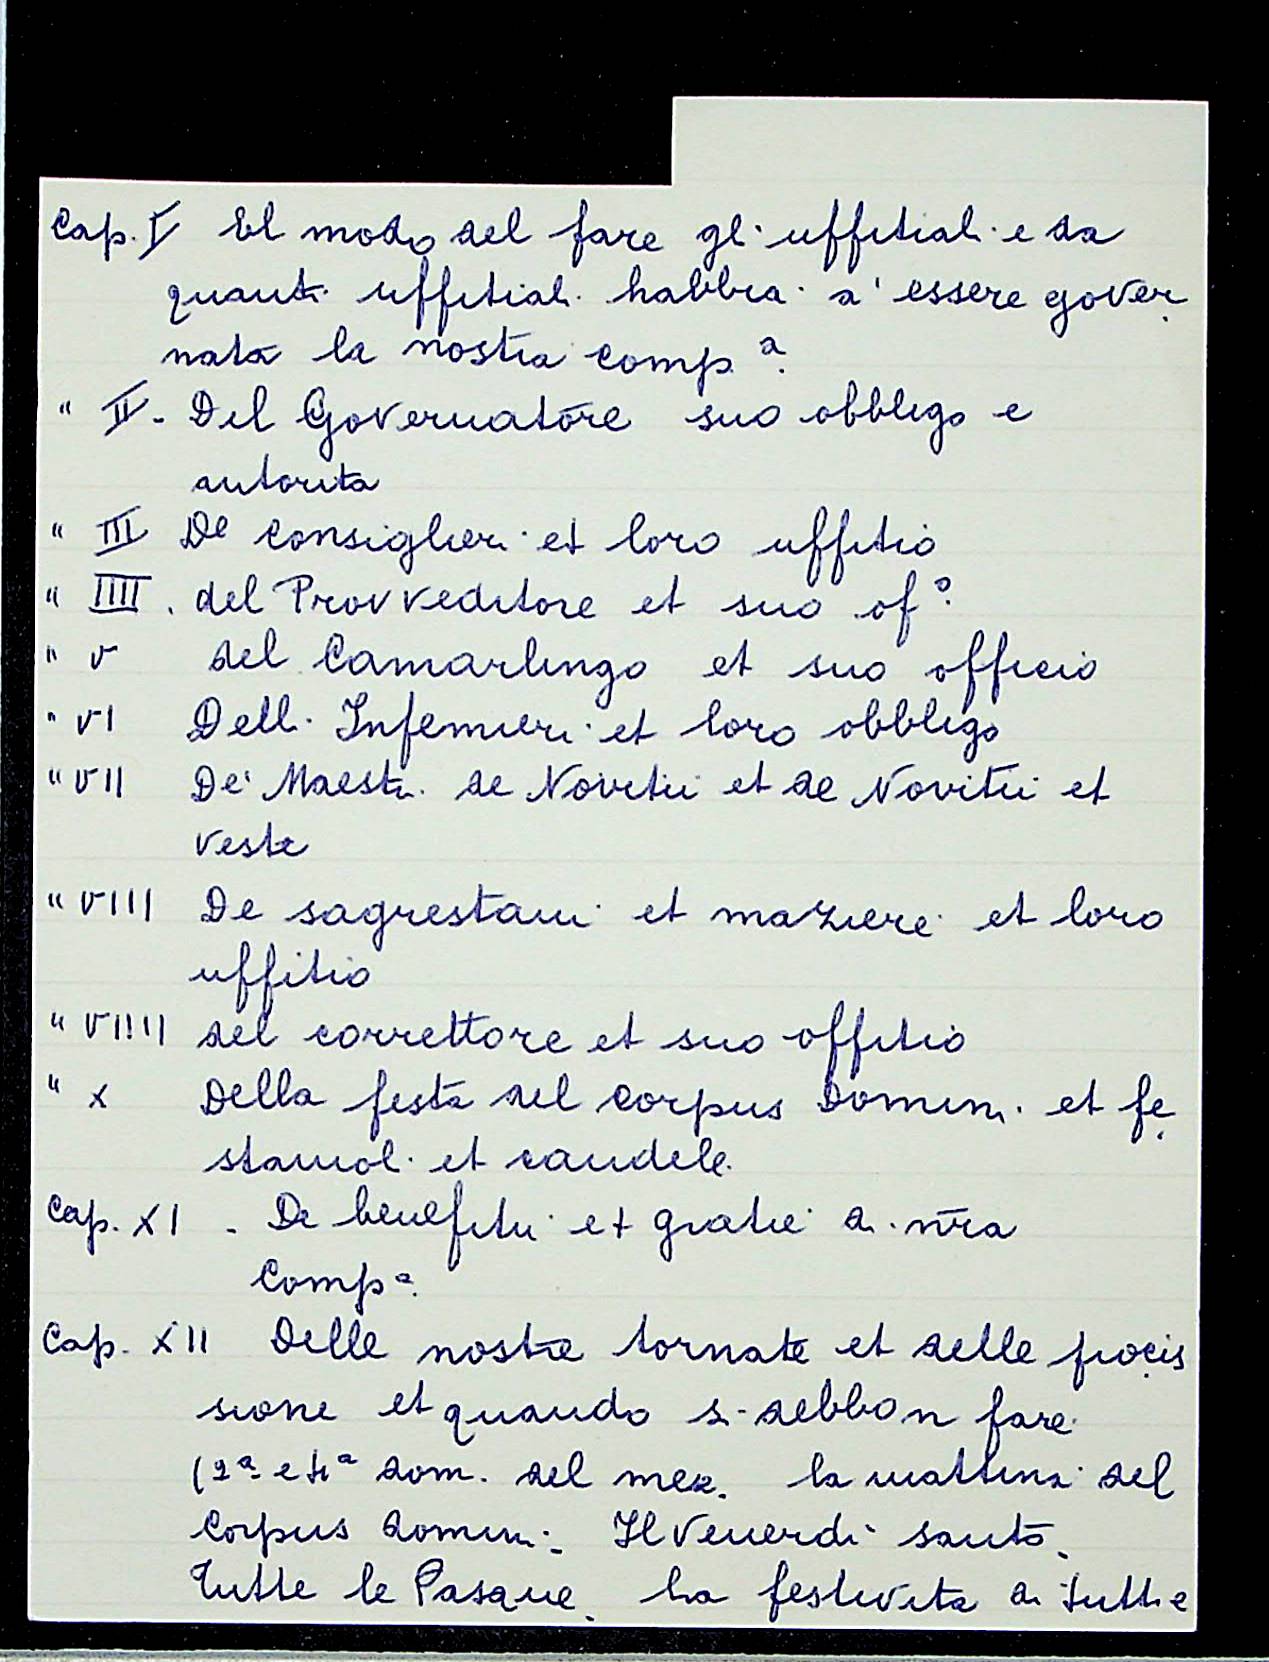 Cap. I El modo del fare gl'uffitiali e da
quanti uffitiali habbia a' essere gover
nata la nostra comp.ª
" II. Del Governatore suo obbligo e
autorita
" III De consiglieri et loro uffitio
" IIII. del Provveditore et suo of.º
" V del Camarlingo et suo officio
" VI Delli Infermieri et loro obbligo
" VII De' Maestri de Novitii et de Novitii et
veste
" VIII De sagrestani et maziere et loro
uffitio
" VIIII del correttore et suo offitio
" X Della festa del Corpus Domini et fe
staiuoli et candele.
Cap. XI . De benefitii et gratie di nr̄a
Compª.
Cap. XII Delle nostre tornate et delle procis
sione et quando si debbon fare
(2ª e 4ª dom. del mese. la mattina del
Corpus domini. Il Venerdi santo.
Tutte le Pasque. la festivita di tutti e